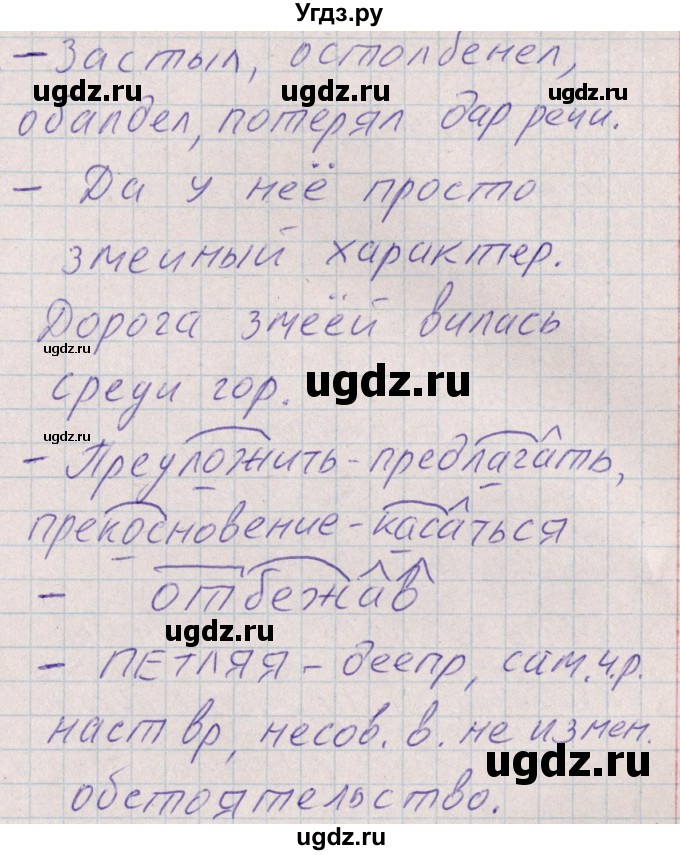 Угдз.ру
- Застыл, остолбенел,
ugdz.ru ugdz.ru
обалдел, потерял дар речи.
- Да у неё просто
ugdz.ru ugdz.ru
змеиный характер.
Дорога змеёй вилась
ugdz.ru
среди гор. ugdz.ru
ugdz.ru
- Предложить - предлагать,
прекосновение - касаться
- отбежав
ugdz.ru
- ПЕТЛЯЯ - деепр, сам.ч.р.
наст вр, несов. в. не измен.
ugdz.ru
обстоятельство.
ugdz.ru